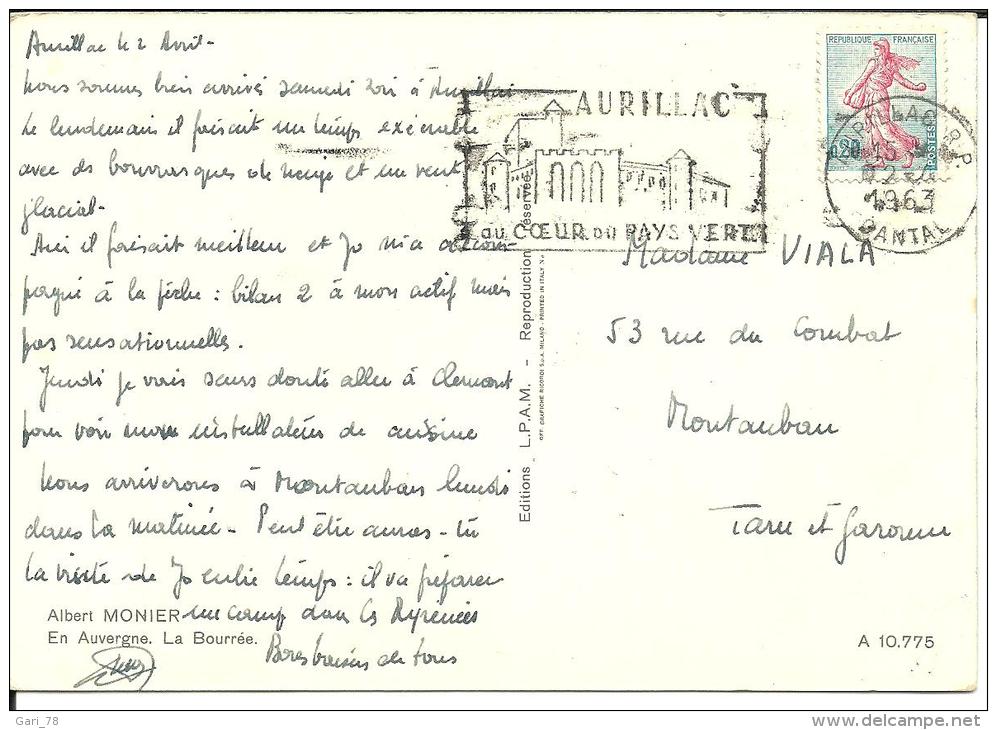 Aurillac le 2 Avril -
Nous sommes bien arrivés samedi soir à Aurillac
Le lendemain il faisait un temps exécrable
avec des bourrasques de neige et un vent
glacial -
Hier il faisait meilleur et Jo m'a accom-
pagné à la pêche : bilan 2 à mon actif mais
pas sensationnelles.
Jeudi je vais sans doute aller à Clermont
pour voir mon installateur de cuisine
Nous arriverons à Montauban lundi
dans la matinée - Peut être auras-tu
la visite de Jo entre temps : il va préparer
un camp dans les Pyrénées
Bons baisers de tous
Albert MONIER
En Auvergne. La Bourrée.
Editions L.P.A.M. - Reproduction réservée
OFF. GRAFICHE RICORDI S.p.A. MILANO - PRINTED IN ITALY
AURILLAC
au CŒUR DU PAYS VERT
RÉPUBLIQUE FRANÇAISE
0,20
POSTES
AURILLAC R.P.
1963
CANTAL
Madame VIALA
53 rue du Combat
Montauban
Tarn et Garonne
A 10.775
Gari_78
delcampe.net